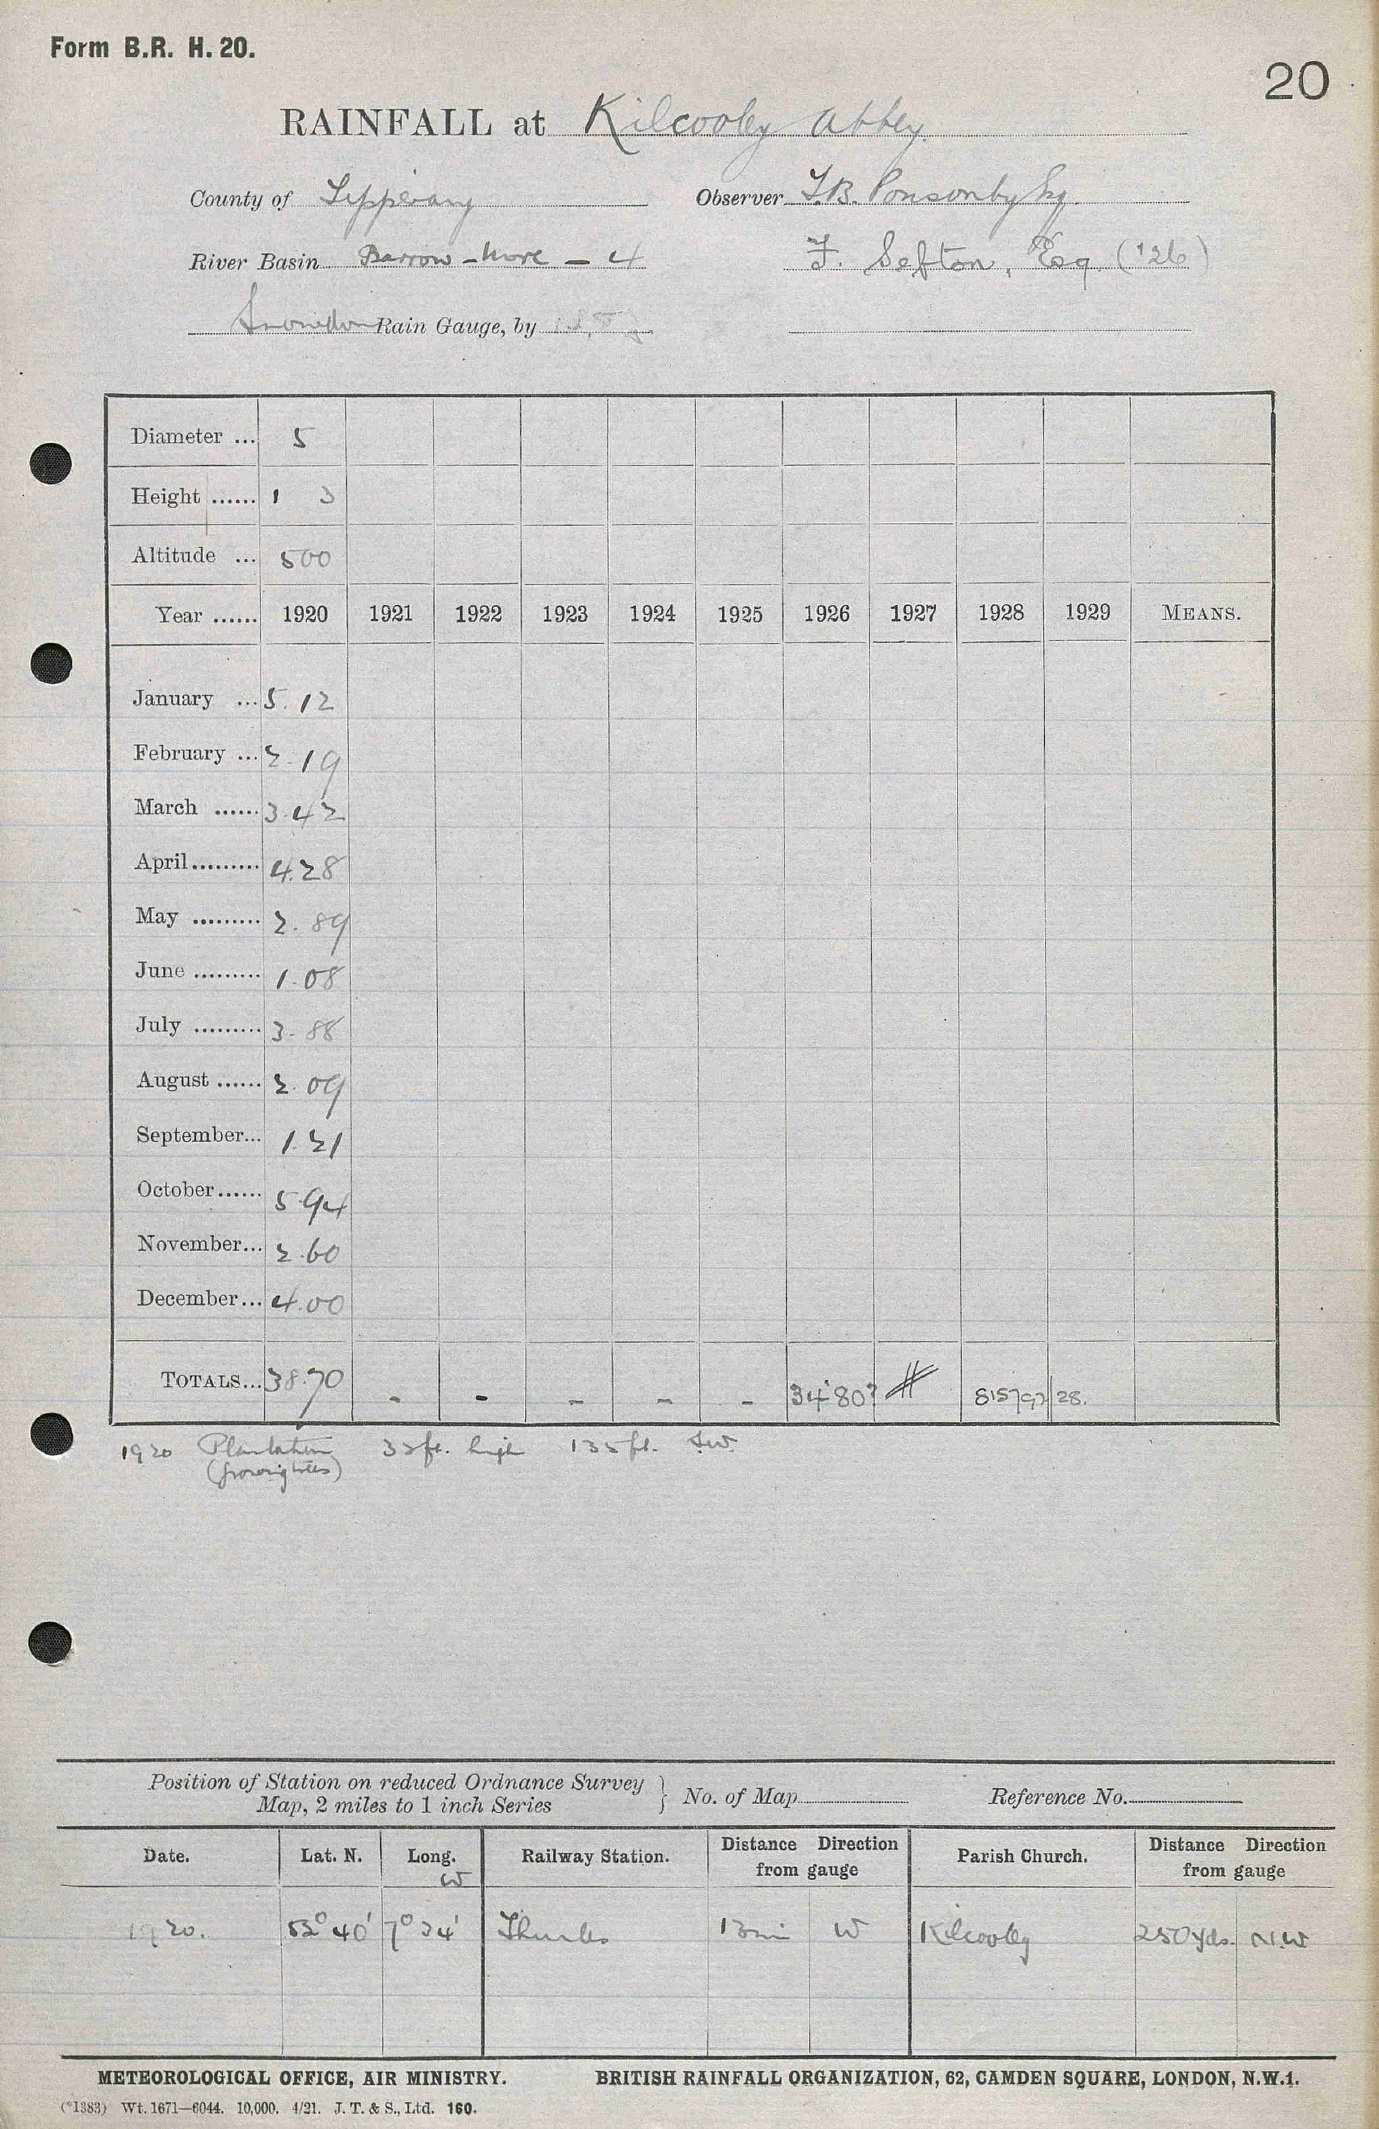 Form B.R. H. 20.
20
RAINFALL at Kilcooley Abbey.
County of Tipperary Observer T.B. Ponsonby Esq.
River Basin Barrow - Nore - 4 F. Sefton, Esq. ('26)
Snowdon Rain Gauge, by
Diameter ... 5
Height ...... 1
Altitude ... 500
Year ...... 1920 1921 1922 1923 1924 1925 1926 1927 1928 1929 MEANS.
January ... 5.12
February ... 2.19
March ...... 3.42
April ......... 4.28
May ......... 2.89
June ......... 1.08
July ......... 3.88
August ...... 2.09
September... 1.21
October ...... 5.94
November... 2.60
December... 4.00
TOTALS... 38.70 - - - - - 34.80? #
1920 Plantation 35ft. high 135ft. S.W.
(growing trees)
Position of Station on reduced Ordnance Survey
Map, 2 miles to 1 inch Series } No. of Map Reference No.
Date. Lat. N. Long. W Railway Station. Distance Direction from gauge Parish Church. Distance Direction from gauge
1920. 52° 40' 7° 34' Thurles 13mi W Kilcooley 250yds. N.W
METEOROLOGICAL OFFICE, AIR MINISTRY. BRITISH RAINFALL ORGANIZATION, 62, CAMDEN SQUARE, LONDON, N.W.1.
(*1383) Wt. 1671—6044. 10,000. 4/21. J. T. & S., Ltd. 160.